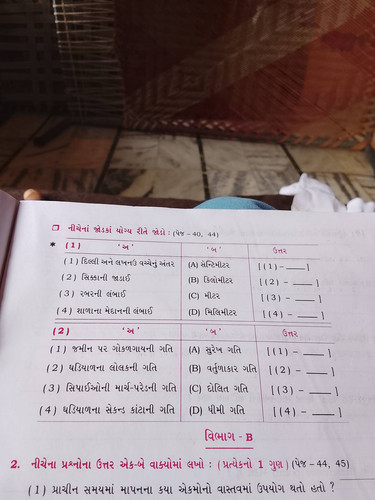 ❑ નીચેનાં જોડકાં યોગ્ય રીતે જોડો : (પેજ – 40, 44)
* (1) ‘અ’ ‘બ’ ઉત્તર
(1) દિલ્લી અને લખનઉ વચ્ચેનું અંતર (A) સેન્ટિમીટર [(1) – ___ ]
(2) સિક્કાની જાડાઈ (B) કિલોમીટર [(2) – ___ ]
(3) રબરની લંબાઈ (C) મીટર [(3) – ___ ]
(4) શાળાના મેદાનની લંબાઈ (D) મિલિમીટર [(4) – ___ ]
(2) ‘અ’ ‘બ’ ઉત્તર
(1) જમીન પર ગોકળગાયની ગતિ (A) સુરેખ ગતિ [(1) – ___ ]
(2) ઘડિયાળના લોલકની ગતિ (B) વર્તુળાકાર ગતિ [(2) – ___ ]
(3) સિપાઈઓની માર્ચ-પરેડની ગતિ (C) દોલિત ગતિ [(3) – ___ ]
(4) ઘડિયાળના સેકન્ડ કાંટાની ગતિ (D) ધીમી ગતિ [(4) – ___ ]
વિભાગ - B
2. નીચેના પ્રશ્નોના ઉત્તર એક-બે વાક્યોમાં લખો : (પ્રત્યેકનો 1 ગુણ) (પેજ – 44, 45)
(1) પ્રાચીન સમયમાં માપનના કયા એકમોનો વાસ્તવમાં ઉપયોગ થતો હતો ?